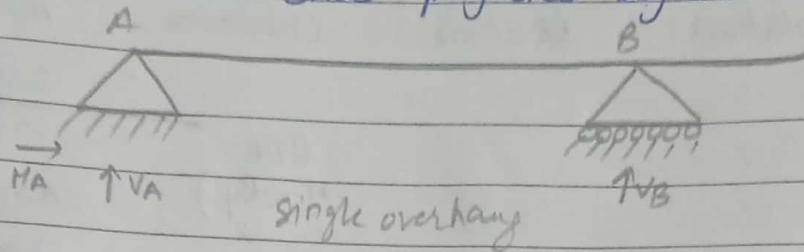 A
B
HA
↑VA
↑VB
single overhang